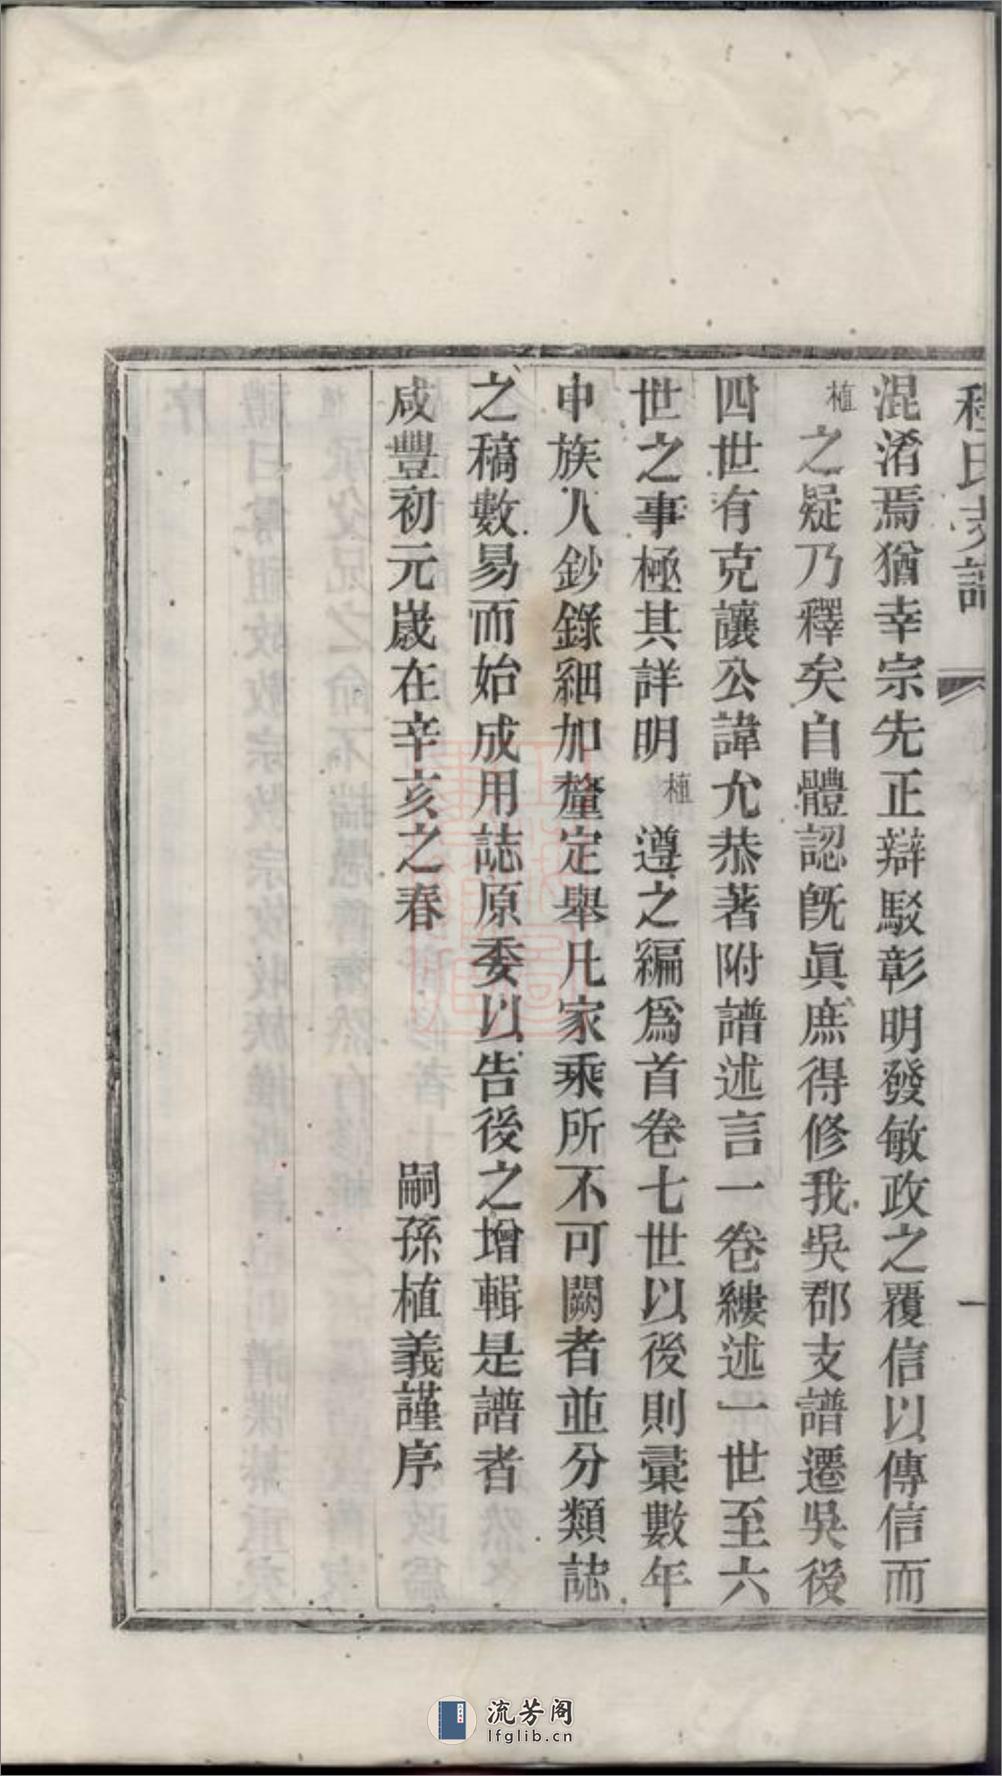 程氏支譜
一
混淆焉猶幸宗先正辯駁彰明發敏政之覆信以傳信而
植之疑乃釋矣自體認旣眞庶得修我吳郡支譜遷吳後
四世有克讓公諱允恭著附譜述言一卷縷述一世至六
世之事極其詳明植遵之編爲首卷七世以後則彙數年
中族人鈔錄細加釐定舉凡家乘所不可闕者並分類誌
之稿數易而始成用誌原委以告後之增輯是譜者
咸豐初元歲在辛亥之春 嗣孫植義謹序
流芳阁
lfglib.cn